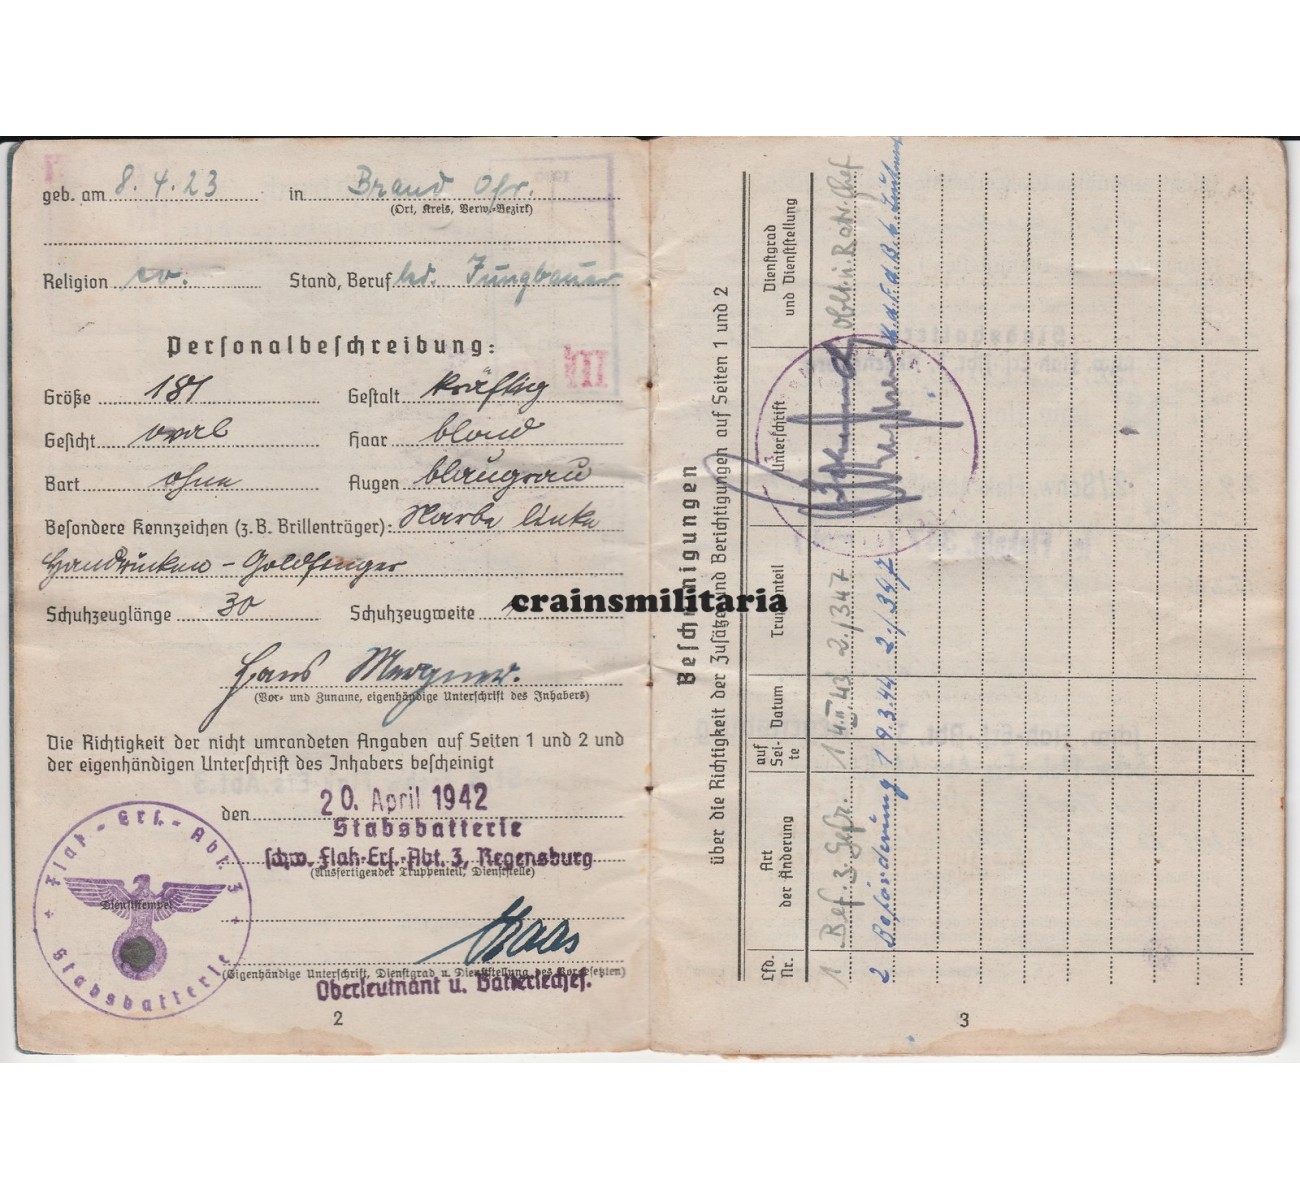 geb. am 8.4.23 in Brand Ofr.
(Ort, Kreis, Verw.-Bezirk)
Religion ev. Stand, Beruf led. Jungbauer
Personalbeschreibung:
Größe 181 Gestalt kräftig
Gesicht oval Haar blond
Bart ohne Augen blaugrau
Besondere Kennzeichen (z.B. Brillenträger): Narbe linke
Handrücken - Goldfinger
Schuhzeuglänge 30 Schuhzeugweite
crainsmilitaria
Hans
(Vor- und Zuname, eigenhändige Unterschrift des Inhabers)
Die Richtigkeit der nicht umrandeten Angaben auf Seiten 1 und 2 und
der eigenhändigen Unterschrift des Inhabers bescheinigt
den 20. April 1942
Stabsbatterie
schw. Flak-Ers.-Abt. 3, Regensburg
(Ausfertigender Truppenteil, Dienststelle)
Flak-Ers.-Abt. 3
Dienststempel
Stabsbatterie
Haas
(Eigenhändige Unterschrift, Dienstgrad u. Dienststellung des Vorgesetzten)
Oberleutnant u. Batteriechef.
2
Bescheinigungen
über die Richtigkeit der Zusätze und Berichtigungen auf Seiten 1 und 2
Lfd. Nr.
Art der Änderung
auf Seite
Datum
Truppenteil
Unterschrift
Dienstgrad und Dienststellung
1 Bef. z. Gefr. 1 4.II.43 2./347 Oblt. u. Battr. Chef
2 Beförderung 1 9.3.44 2./347
3